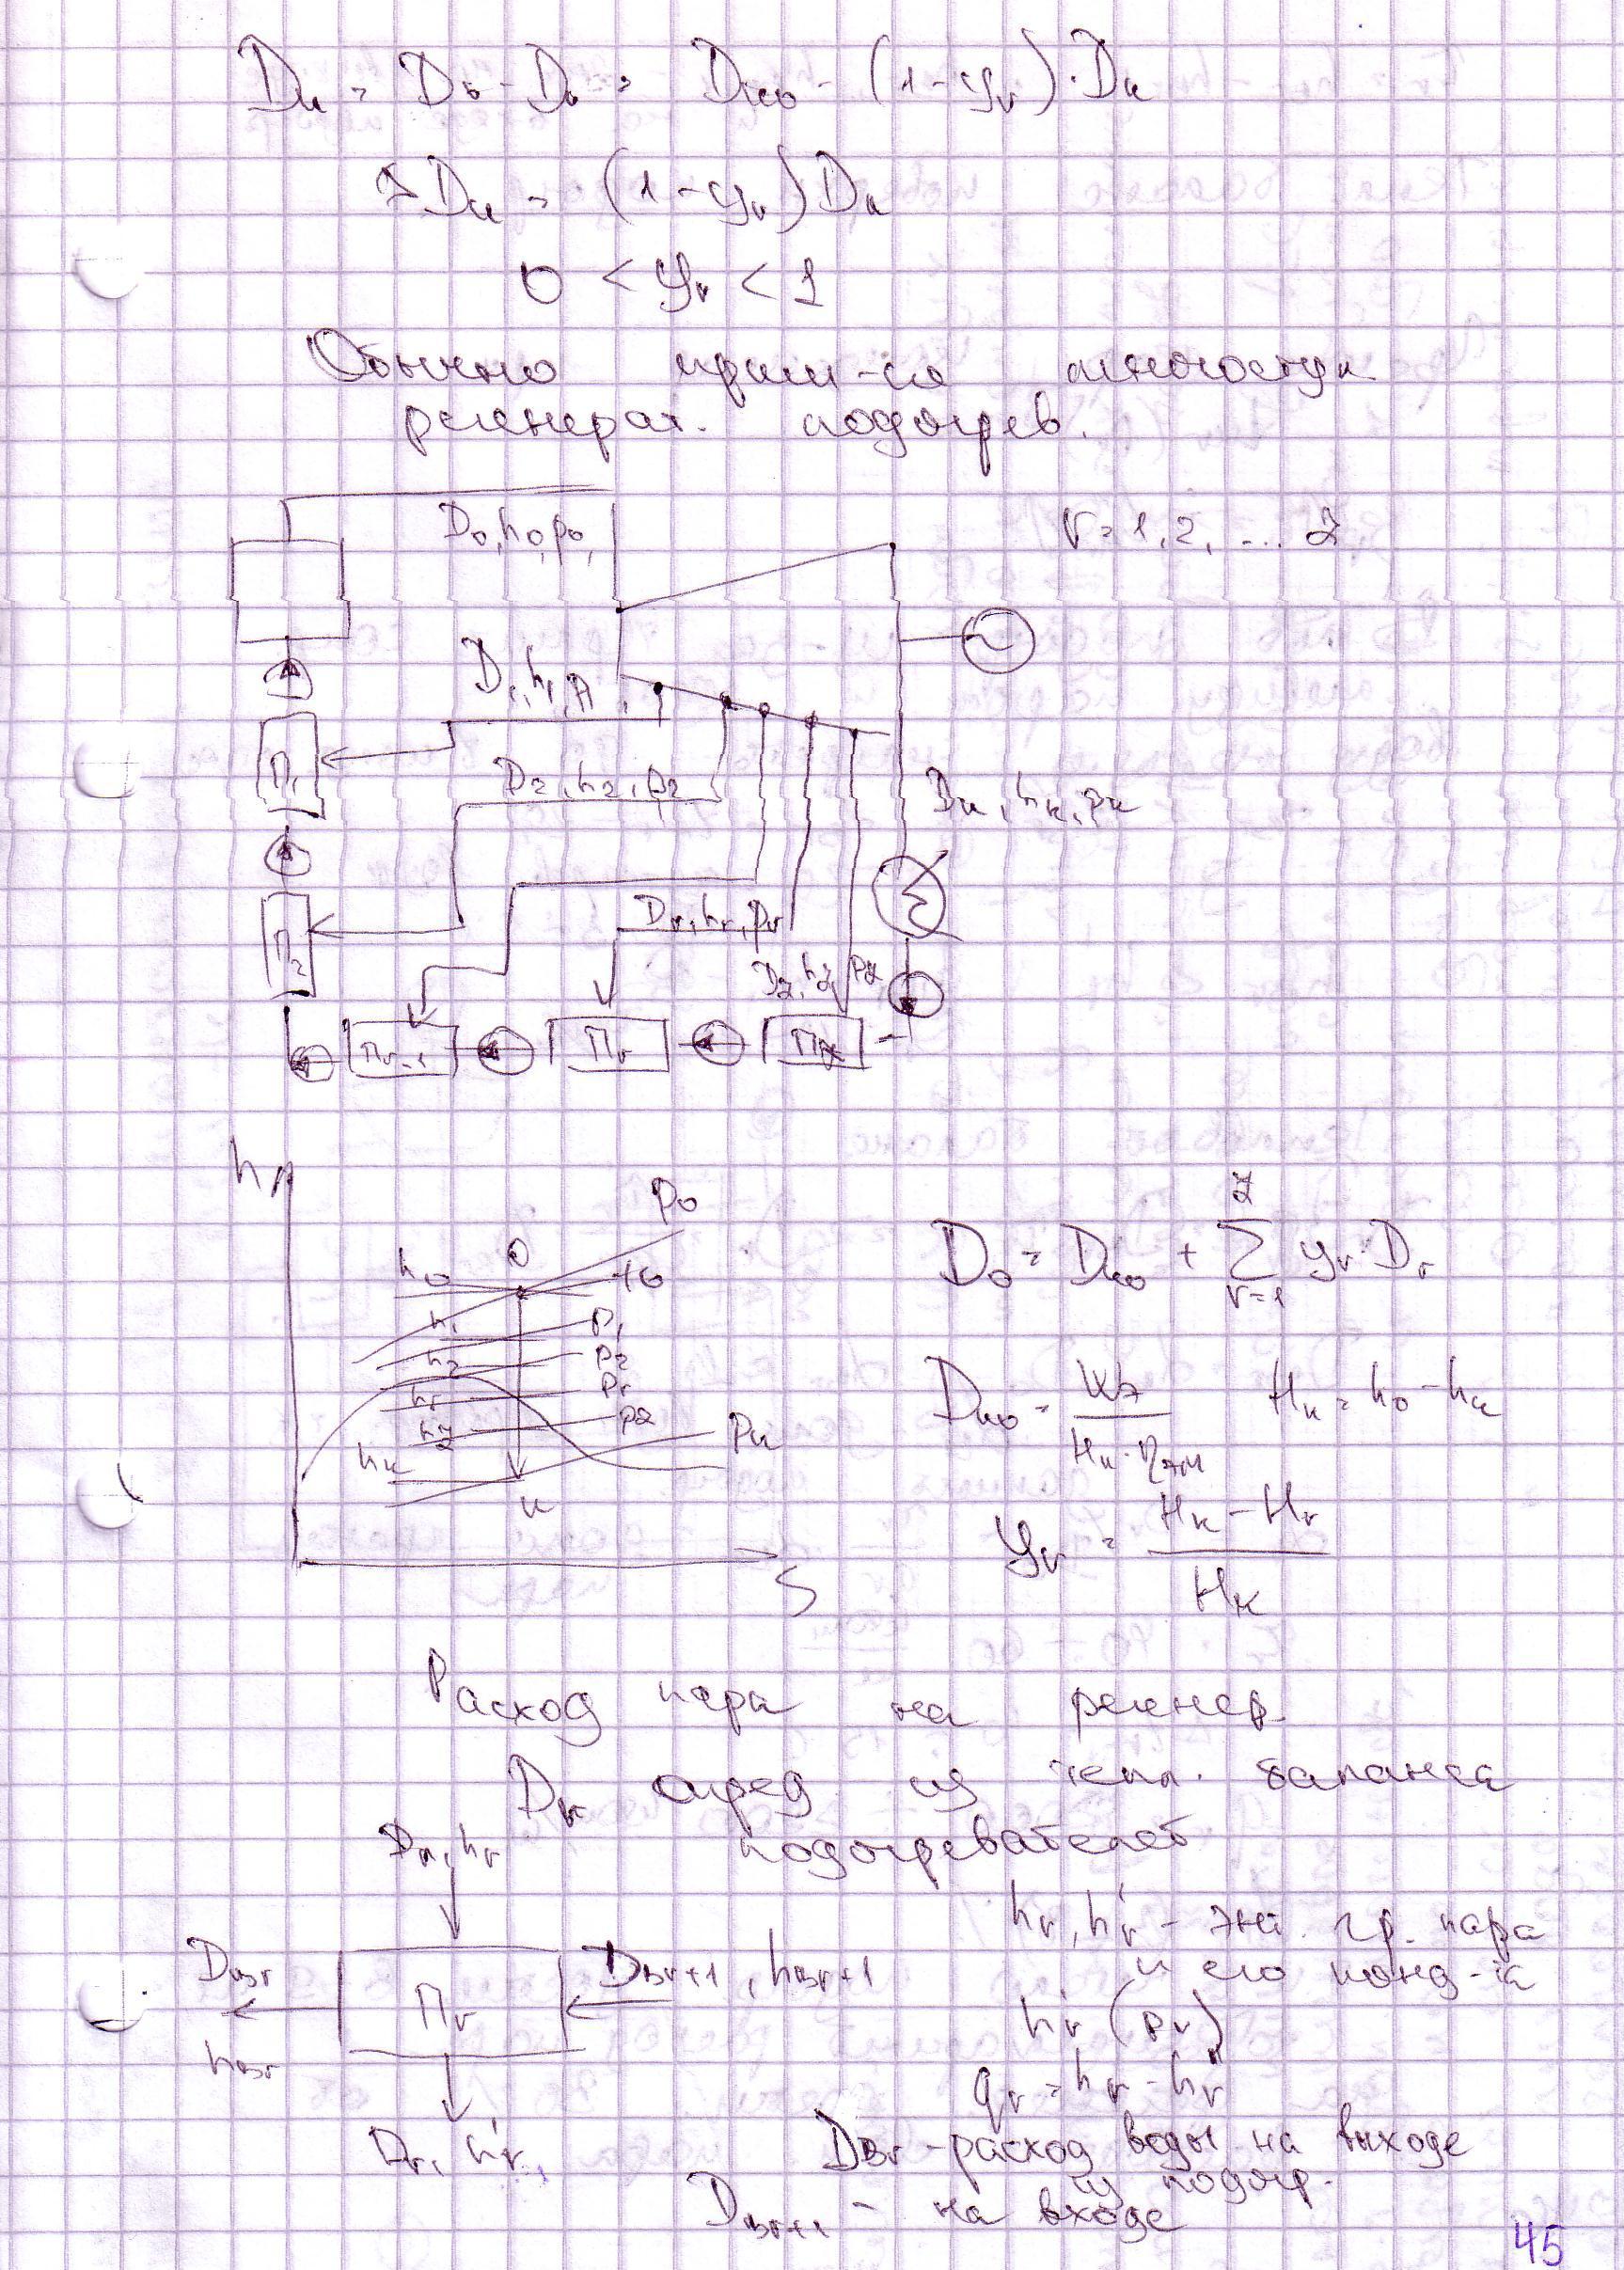 Dк = D0 - Dr = Dко - (1-yr)·Dк
Dк = (1-yr)Dк
0 < yr < 1
Обычно прим-ся многоступ
регенерат. подогрев.
D0, h0, p0,
r = 1, 2, ... z
D1, h1, p1
П1
D2, h2, p2
Dк, hк, pк
П2
Dr, hr, pr
Dz, hz, pz
Пr-1
Пr
Пz
h
p0
0
h0
t0
h1
p1
h2
p2
hr
pr
hz
pz
hк
pк
к
S
D0 = Dко + Σ yr·Dr
z
r=1
Dко = Wэ / (Hк·ηэм) Hк = h0 - hк
yr = (Hк - Hr) / Hк
Расход пара на регенер.
Dr опред из тепл. баланса
подогревателей
Dr, hr
hr, h'r - энт. гр. пара
и его конд-та
Dвr
Пr
Dвr+1, hвr+1
hвr
h'r (pr)
qr = hr - h'r
Dr, h'r
Dвr - расход воды на выходе
из подогр.
Dвr+1 - на входе
45